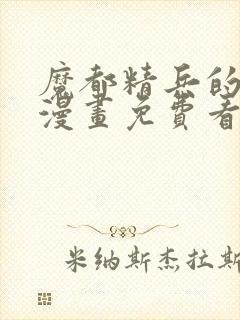 魔都精兵的
漫畫免費看
米纳斯杰拉斯